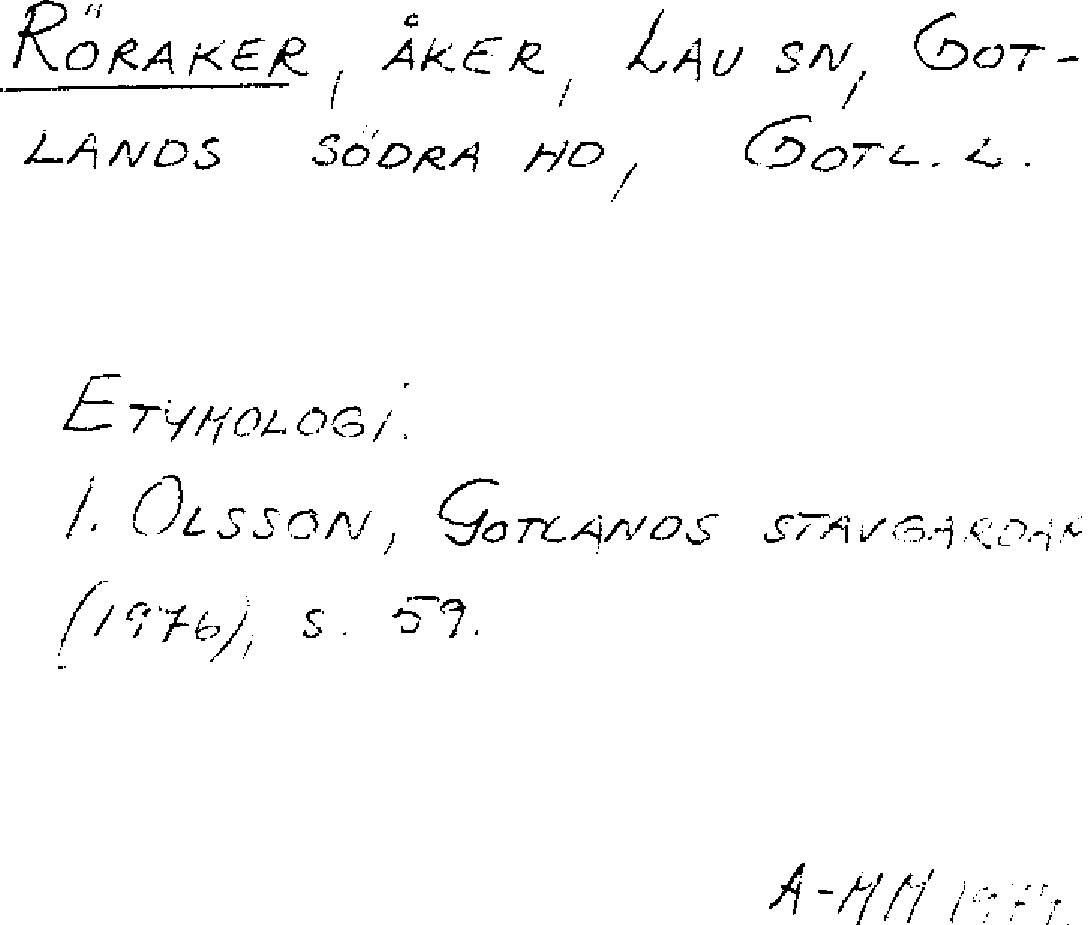 RÖRAKER, ÅKER, LAU SN, GOT-
LANDS SÖDRA HD, GOTL. L.
ETYMOLOGI:
I. OLSSON, GOTLANDS STAVGARDAR
(1976), S. 59.
A-MM